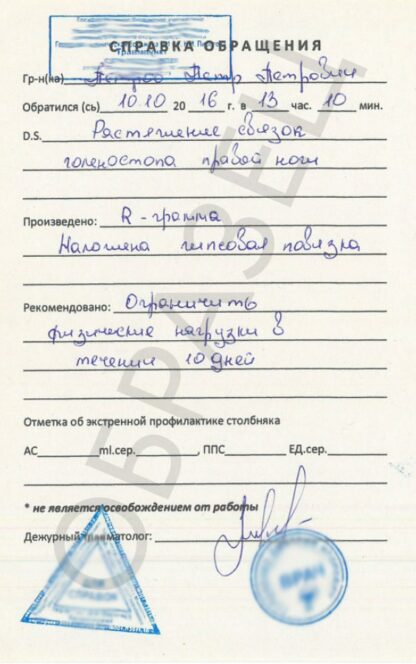 СПРАВКА ОБРАЩЕНИЯ
Гр-н(ка) Петров Петр Петрович
Обратился (сь) 10.10 20 16 г. в 13 час. 10 мин.
D.S. Растяжение связок
голеностопа правой ноги
Произведено: R - грамма
Наложена гипсовая повязка
Рекомендовано: Ограничить
физические нагрузки в
течении 10 дней
Отметка об экстренной профилактике столбняка
АС ml.сер. , ППС ЕД.сер.
* не является освобождением от работы
Дежурный травматолог:
СПРАВОК
ВРАЧ
ОБРАЗЕЦ